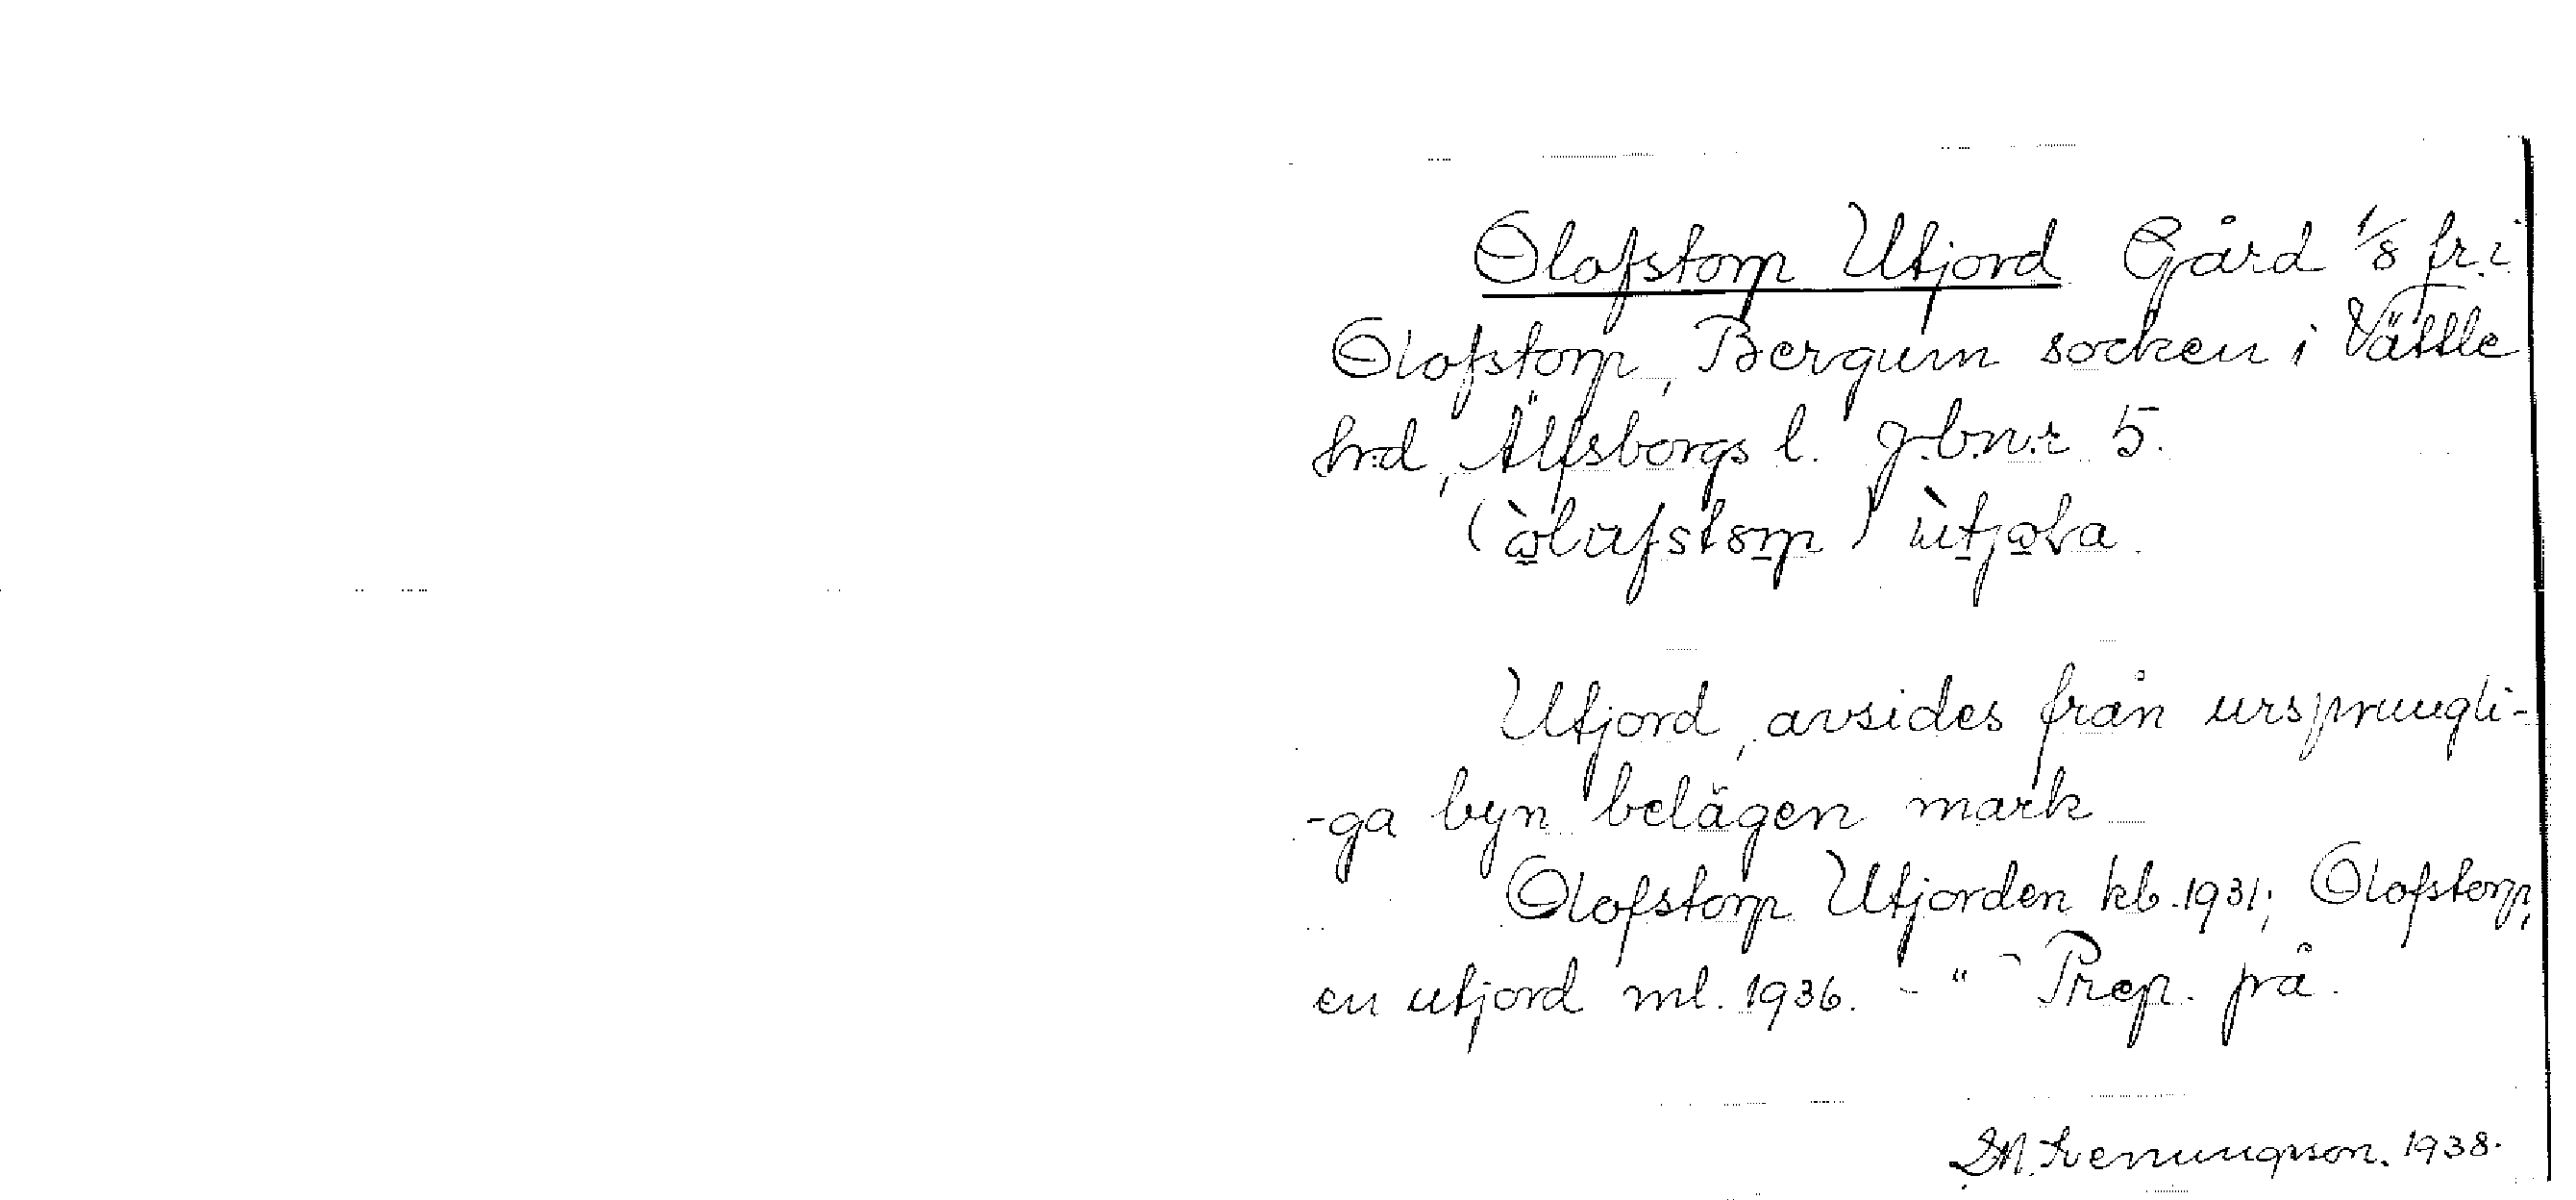 Olofstorp Utjord Gård 1/8 fr. i
Olofstorp, Bergum socken i Vättle
hrd, Älfsborgs l. g.b.n.r 5.
Utjord, avsides från ursprungli-
-ga byn belägen mark
Olofstorp Utjorden kb. 1931; Olofstorp,
en utjord ml. 1936. - " - Prep. på.
1938.